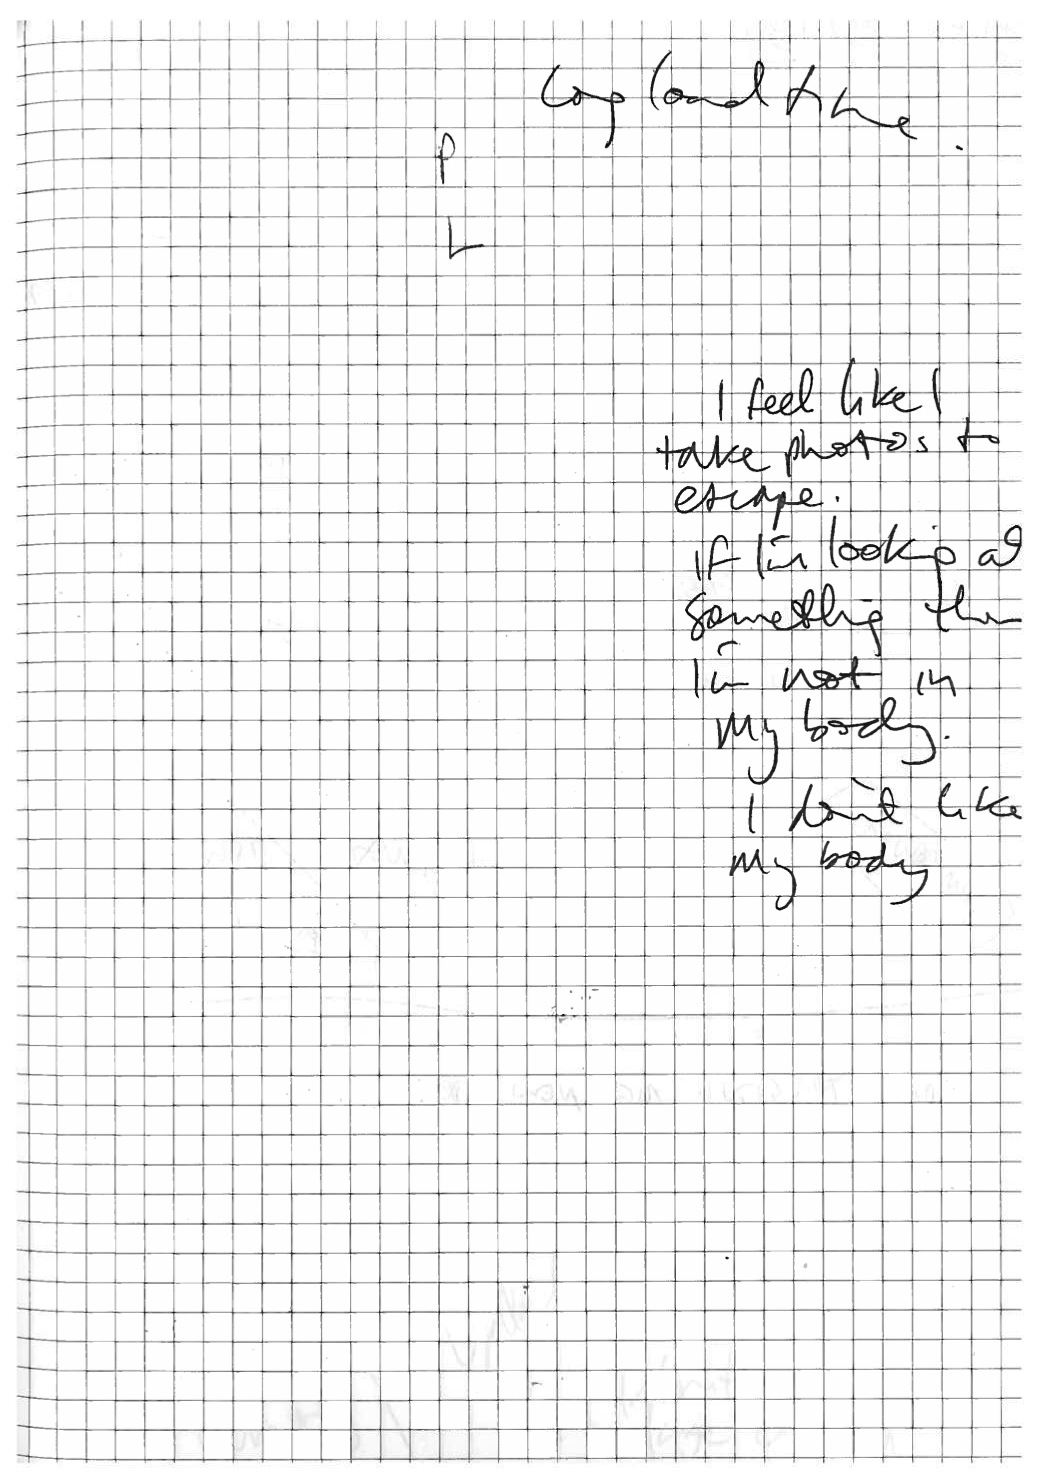 time.
P
L
I feel like I
take photos to
escape.
if I'm looking at
something then
I'm not in
my body.
I don't like
my body